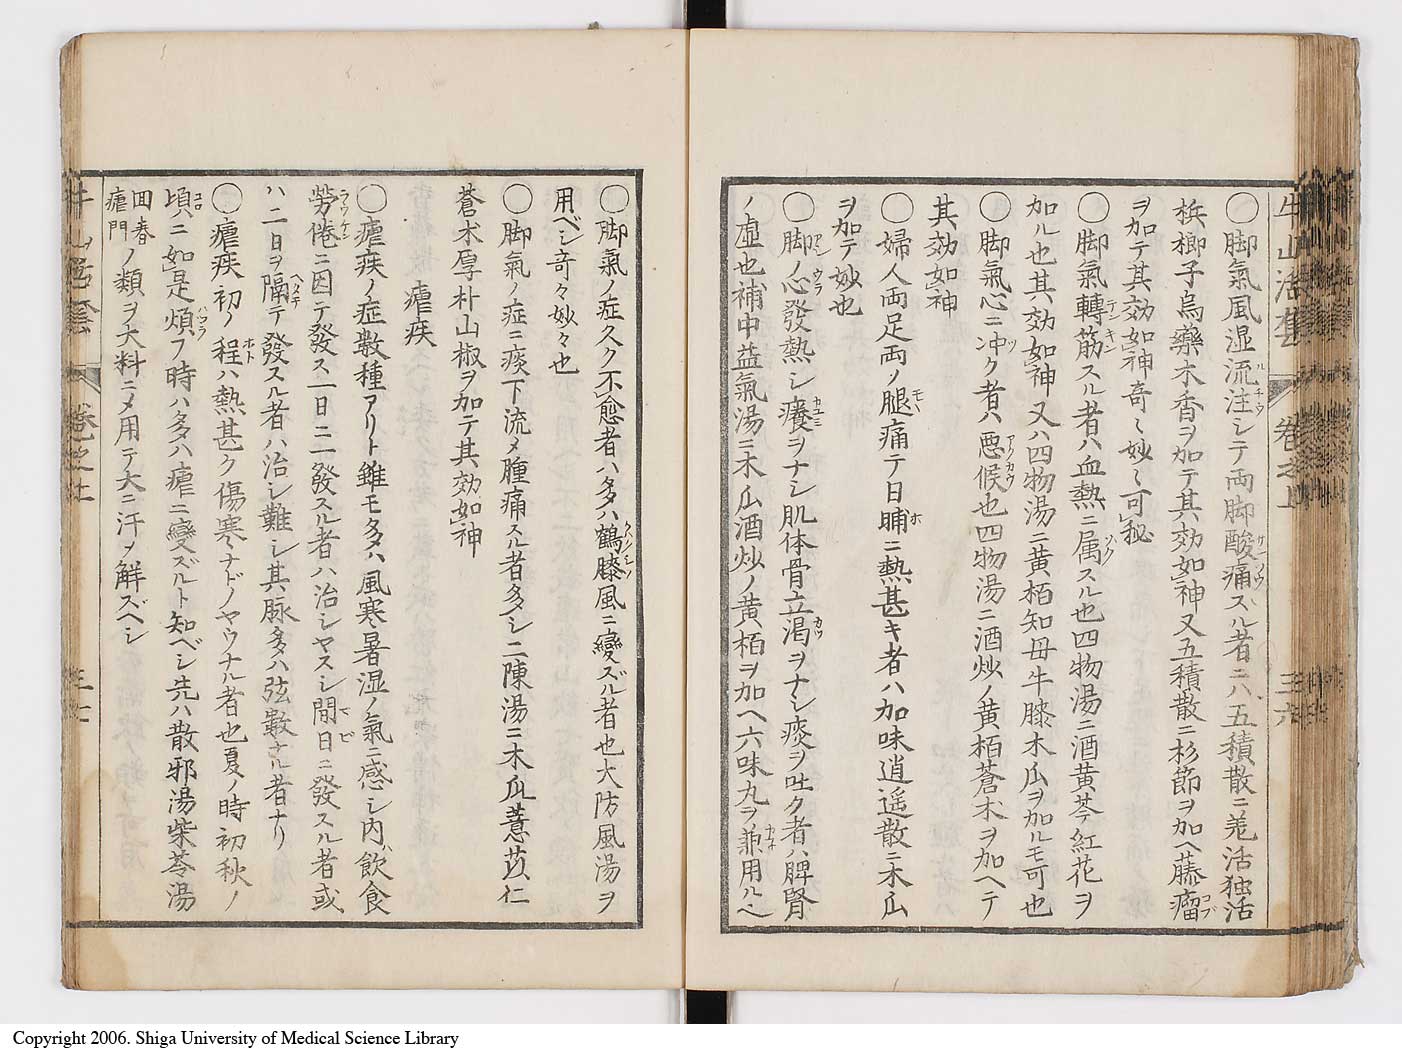 牛山活套 卷之上 三六
〇脚氣風湿流注シテ両脚酸痛スル者ニハ五積散ニ羌活独活
梹榔子烏藥木香ヲ加テ其効如神又五積散ニ杉節ヲ加ヘ藤瘤
ヲ加テ其効如神奇〻妙〻可秘
〇脚氣轉筋スル者ハ血熱ニ属スル也四物湯ニ酒黄芩紅花ヲ
加ル也其効如神又ハ四物湯ニ黄栢知母牛膝木瓜ヲ加ルモ可也
〇脚氣心ニ冲ク者ハ悪候也四物湯ニ酒炒ノ黄栢蒼朮ヲ加ヘテ
其効如神
〇婦人両足両ノ腿痛テ日晡ニ熱甚キ者ハ加味逍遥散ニ木瓜
ヲ加テ妙也
〇脚ノ心發熱シ癢ヲナシ肌体骨立渇ヲナシ痰ヲ吐ク者ハ脾腎
ノ虚也補中益氣湯ニ木瓜酒炒ノ黄栢ヲ加ヘ六味丸ヲ兼用ルヘ
〇脚氣ノ症久ク不愈者ハ多クハ鶴膝風ニ變ズル者也大防風湯ヲ
用ベシ奇々妙々也
〇脚氣ノ症ニ痰下流メ腫痛スル者多シ二陳湯ニ木瓜薏苡仁
蒼朮厚朴山椒ヲ加テ其効如神
瘧疾
〇瘧疾ノ症数種アリト雖モ多クハ風寒暑湿ノ氣ニ感シ内飲食
勞倦ニ因テ發ス一日ニ一發スル者ハ治シヤスシ間日ニ發スル者或
ハ二日ヲ隔テ發スル者ハ治シ難シ其脉多クハ弦数ナル者ナリ
〇瘧疾初ノ程ハ熱甚ク傷寒ナドノヤウナル者也夏ノ時初秋ノ
頃ニ如是煩フ時ハ多クハ瘧ニ變ズルト知ベシ先ハ散邪湯柴苓湯
回春瘧門ノ類ヲ大料ニメ用テ大ニ汗ヲ解ズベシ
牛山活套 卷之上 三七
Copyright 2006. Shiga University of Medical Science Library